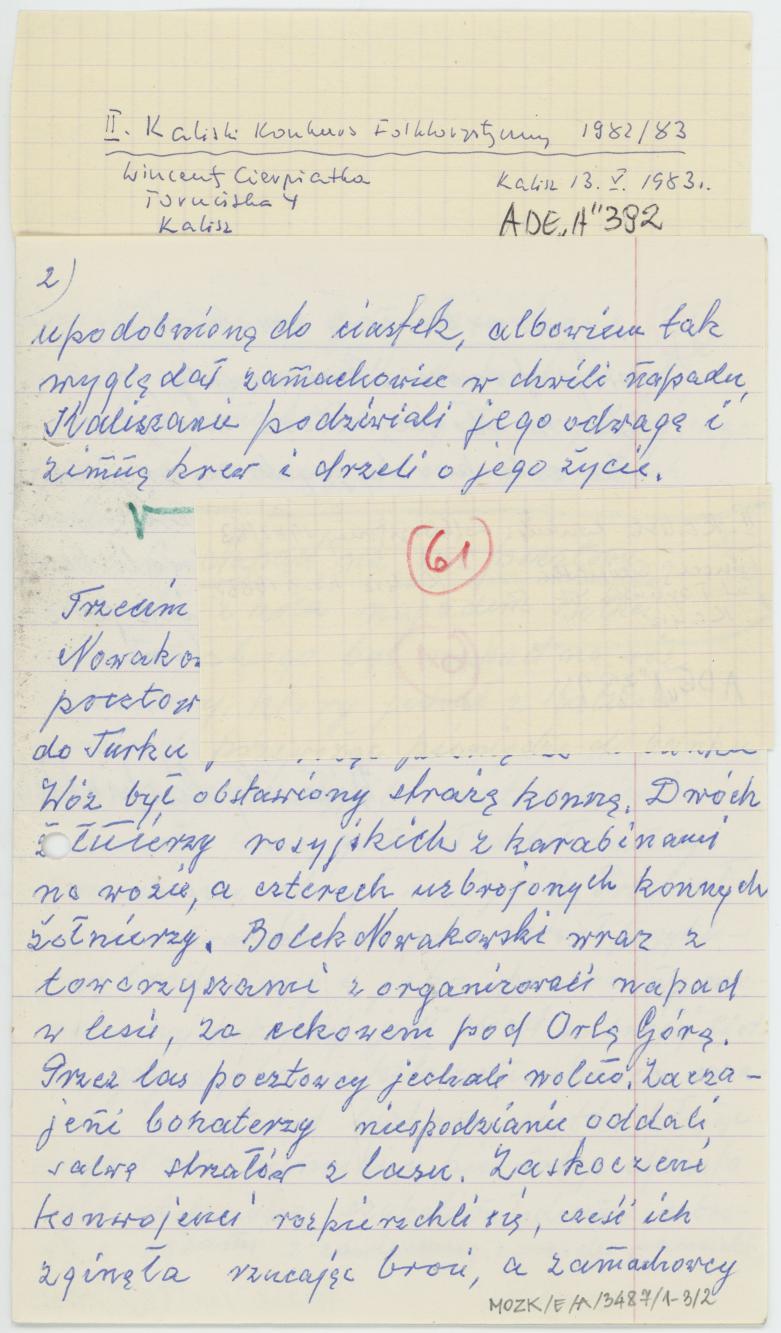 II. Kaliski Konkurs Folklorystyczny 1982/83
Wincenty Cierpiatka
Kalisz 13. V. 1983r.
Toruńska 4
Kalisz
ADE „A" 392
2)
upodobnioną do ciastek, albowiem tak
wyglądał zamachowiec w chwili napadu,
Kaliszanie podziwiali jego odwagę i
zimną krew i drżeli o jego życie.
61
Trzecim
Nowakow
pocztow
do Turku
Wóz był obstawiony strażą konną. Dwóch
żołnierzy rosyjskich z karabinami
na wozie, a czterech uzbrojonych konnych
żołnierzy. Bolek Nowakowski wraz z
towarzyszami zorganizowali napad
w lesie, za cekowem pod Orlą Górą.
Przez las pocztowcy jechali wolno. Zacza-
jeni bohaterzy niespodzianie oddali
salwę strzałów z lasu. Zaskoczeni
konwojenci rozpierzchli się, cześć ich
zginęła rzucając broń, a zamachowcy
MOZK/E/A/3487/1-3/2